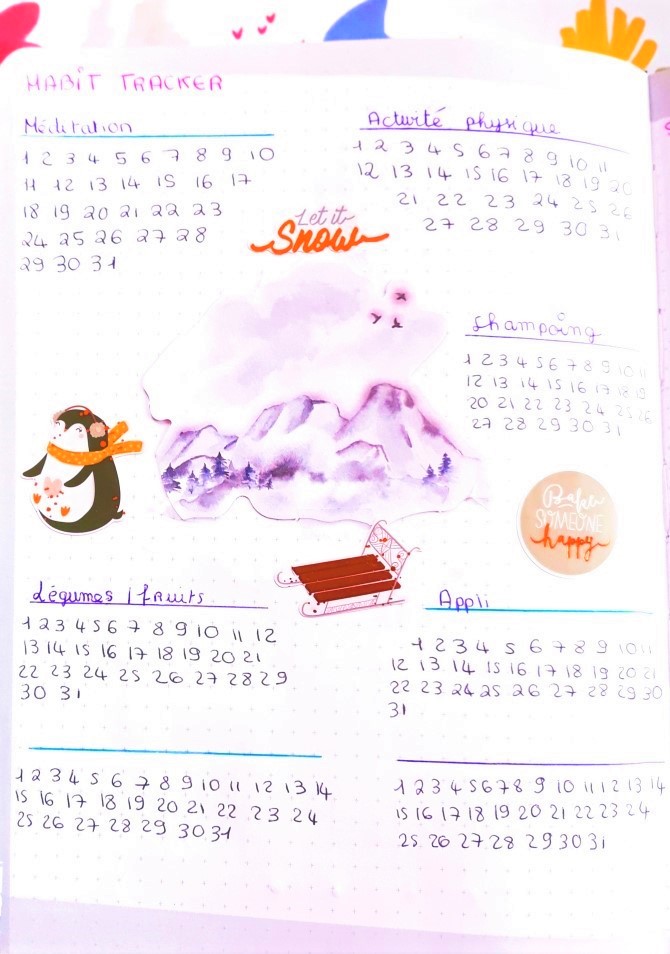 HABIT TRACKER
Méditation
1 2 3 4 5 6 7 8 9 10
11 12 13 14 15 16 17
18 19 20 21 22 23
24 25 26 27 28
29 30 31
Activité physique
1 2 3 4 5 6 7 8 9 10 11
12 13 14 15 16 17 18 19 20
21 22 23 24 25 26
27 28 29 30 31
Let it
Snow
Shampoing
1 2 3 4 5 6 7 8 9 10 11
12 13 14 15 16 17 18 19
20 21 22 23 24 25 26
27 28 29 30 31
SOMEONE
happy
Légumes / fruits
1 2 3 4 5 6 7 8 9 10 11 12
13 14 15 16 17 18 19 20 21
22 23 24 25 26 27 28 29
30 31
Appli
1 2 3 4 5 6 7 8 9 10 11
12 13 14 15 16 17 18 19 20 21
22 23 24 25 26 27 28 29 30
31
1 2 3 4 5 6 7 8 9 10 11 12 13 14
15 16 17 18 19 20 21 22 23 24
25 26 27 28 29 30 31
1 2 3 4 5 6 7 8 9 10 11 12 13 14
15 16 17 18 19 20 21 22 23 24
25 26 27 28 29 30 31